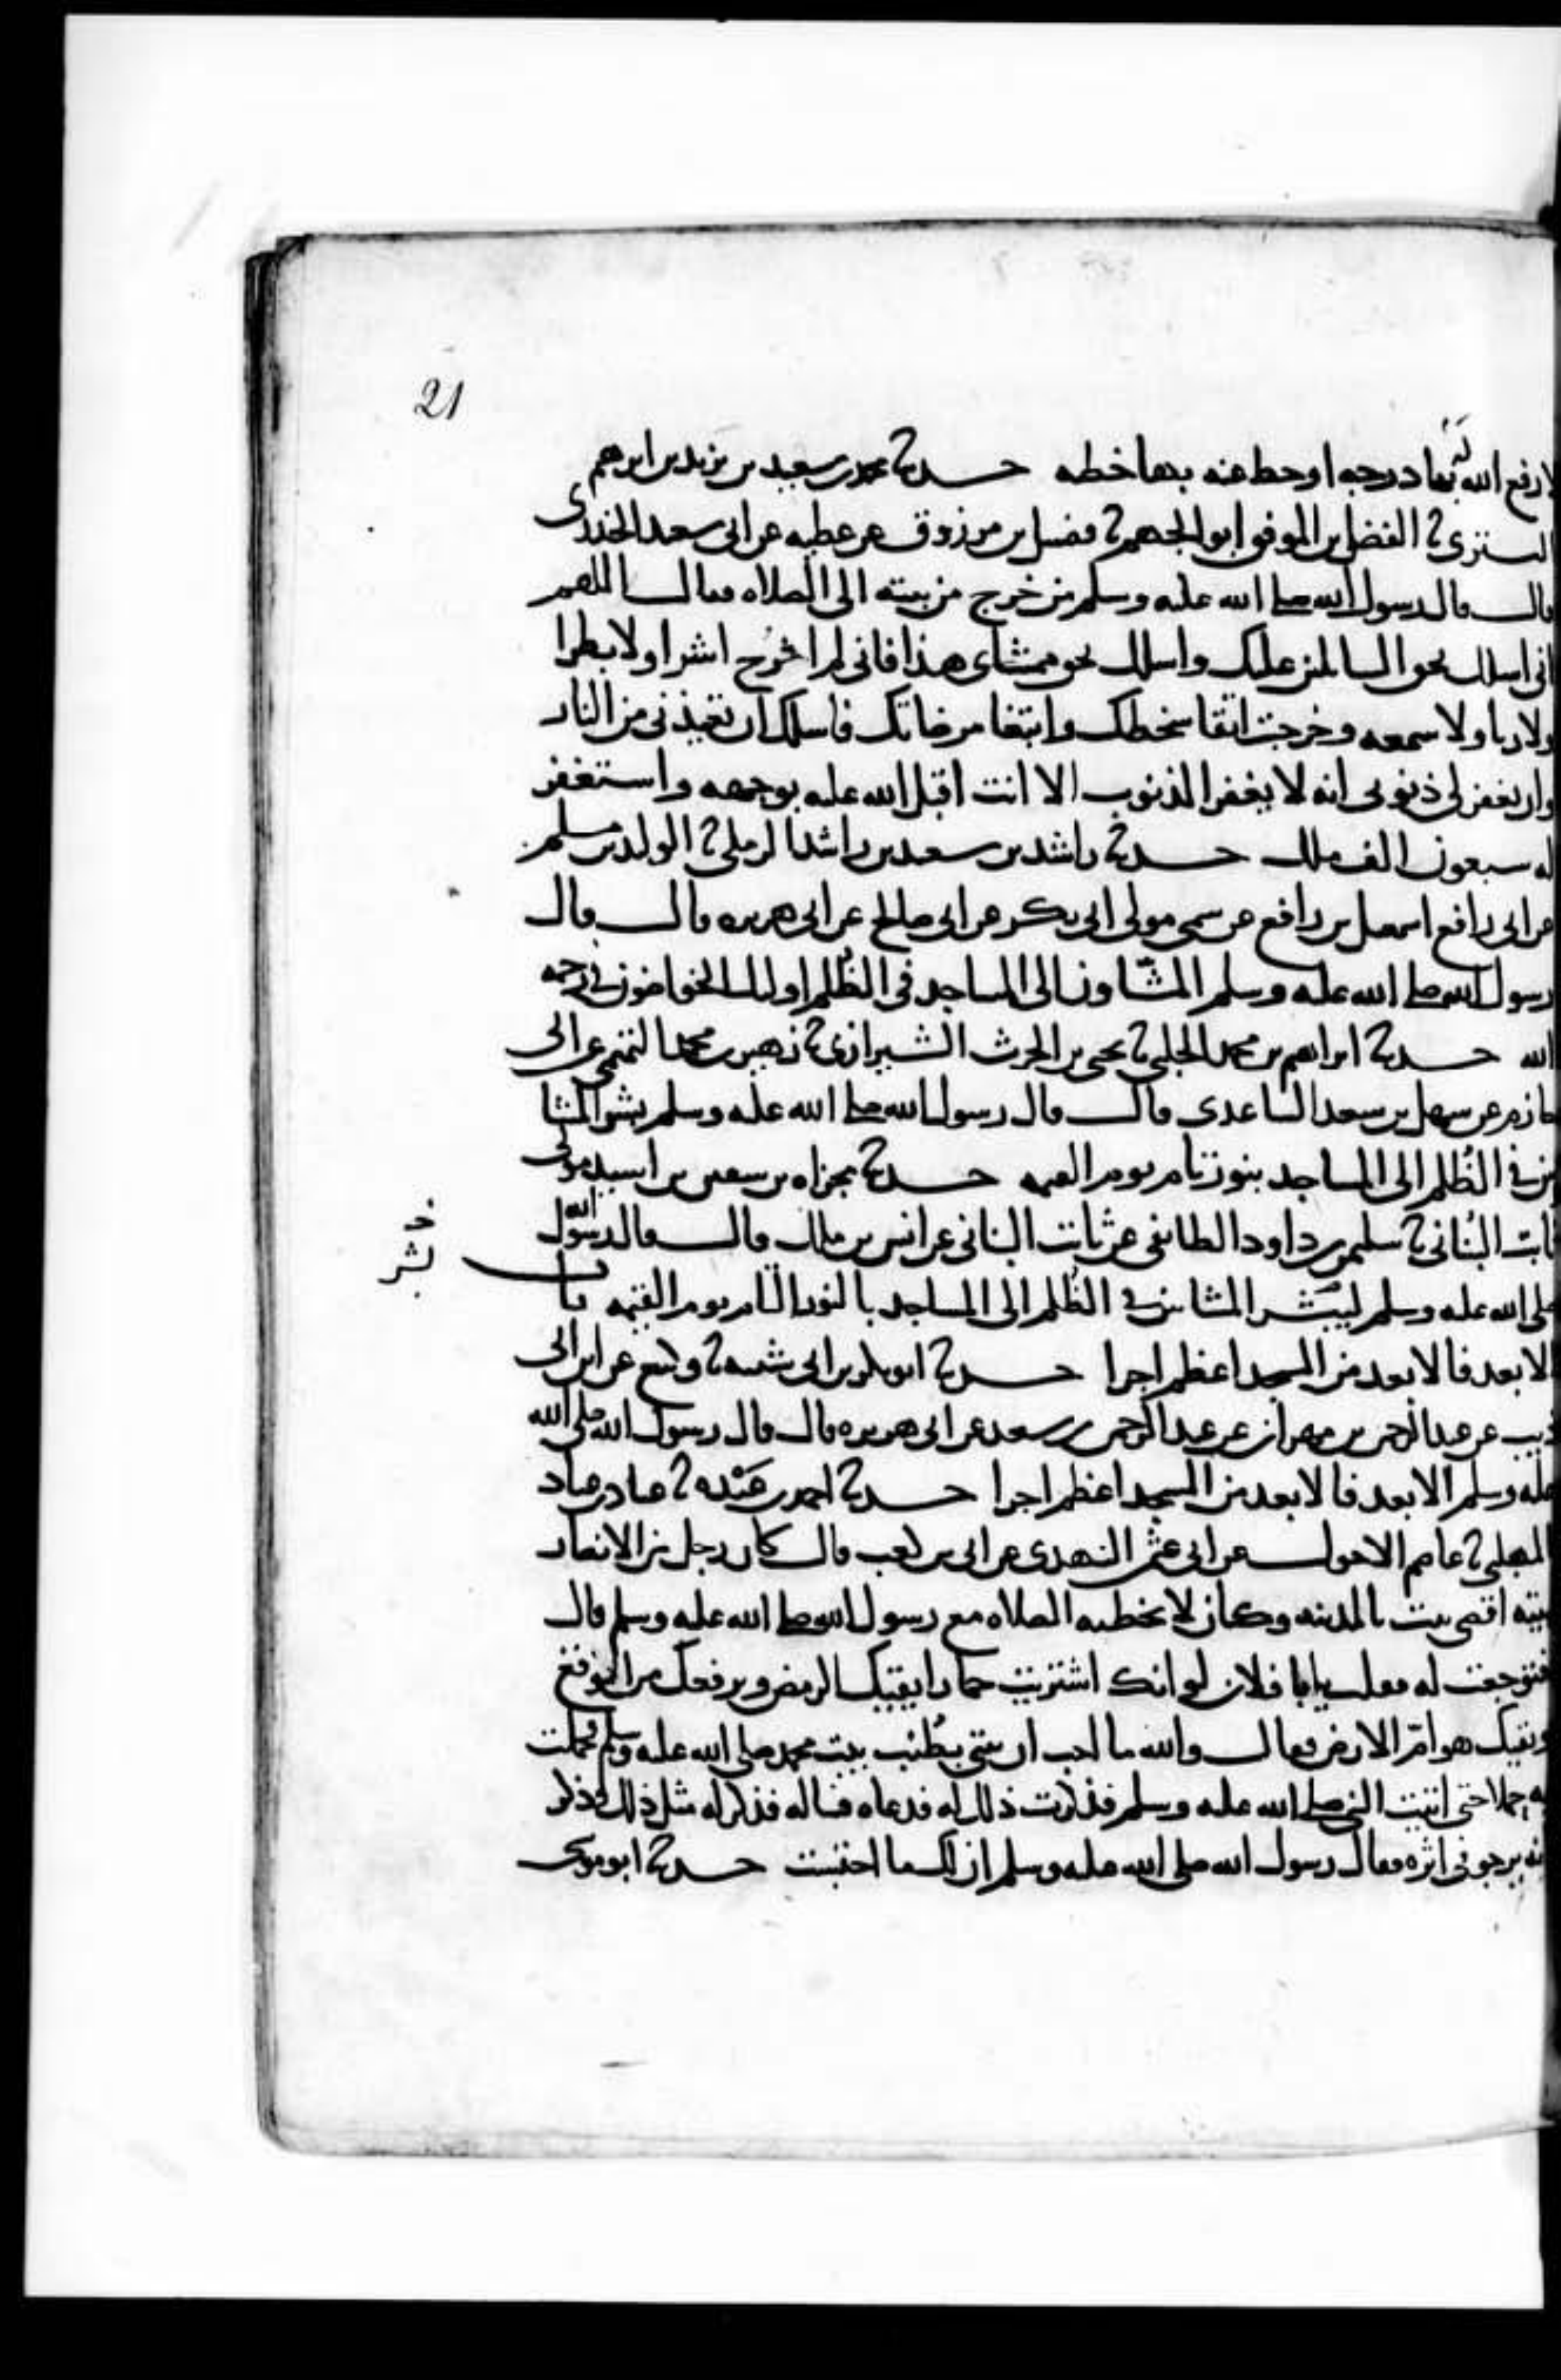 21
لا رفع الله له بها درجه او حط عنه بها خطيه حدثنا محمد بن سعيد بن يزيد بن ابرهيم
التستري ثنا الفضل بن الموفق ابو الجهم ثنا فضيل بن مرزوق عن عطيه عن ابي سعيد الخدري
قال قال رسول الله صلى الله عليه وسلم من خرج من بيته الى الصلاه فقال اللهم
اني اسلك بحق السائلين عليك واسلك بحق ممشاي هذا فاني لم اخرج اشرا ولا بطرا
ولا ريا ولا سمعه وخرجت اتقا سخطك وابتغا مرضاتك فاسلك ان تعيذني من النار
وان تغفر لي ذنوبي انه لا يغفر الذنوب الا انت اقبل الله عليه بوجهه واستغفر
له سبعون الف ملك حدثنا راشد بن سعيد بن راشد الرملي ثنا الوليد بن مسلم
عن ابي رافع اسمعيل بن رافع عن سمي مولى ابي بكر عن ابي صالح عن ابي هريره قال قال
رسول الله صلى الله عليه وسلم المشاون الى المساجد في الظلم اوليك الخواضون في رحمه
الله حدثنا ابراهيم بن محمد الحلبي ثنا يحيى بن الحرث الشيرازي ثنا زهير بن محمد التميمي عن ابي
حازم عن سهل بن سعد الساعدي قال قال رسول الله صلى الله عليه وسلم بشر المشا
ين في الظلم الى المساجد بنور تام يوم القيمه حدثنا مجزاه بن سفين بن اسيد مولى
ثابت البناني ثنا سليمن بن داود الطائفي عن ثابت البناني عن انس بن ملك قال قال رسول الله
صلى الله عليه وسلم ليبشر المشائين في الظلم الى المساجد بالنور التام يوم القيمه باب
خ
بشر
الابعد فالابعد من المسجد اعظم اجرا حدثنا ابو بكر بن ابي شيبه ثنا وكيع عن ابن ابي
ذيب عن عبد الرحمن بن مهران عن عبد الرحمن بن سعد عن ابي هريره قال قال رسول الله صلى الله
عليه وسلم الابعد فالابعد من المسجد اعظم اجرا حدثنا احمد بن عبده ثنا عباد بن عباد
المهلبي ثنا عاصم الاحول عن ابي عثمن النهدي عن ابي بن كعب قال كان رجل من الانصار
بيته اقصى بيت بالمدينه وكان لا تخطيه الصلاه مع رسول الله صلى الله عليه وسلم قال
فتوجعت له فقلت يابا فلان لو انك اشتريت حمارا يقيك الرمض ويرفعك من الوقع
ويقيك هوام الارض فقال والله ما احب ان بيتي بطنب بيت محمد صلى الله عليه وسلم فحملت
به حملا حتى اتيت النبي صلى الله عليه وسلم فذكرت ذلك له فدعاه فساله فذكر له مثل ذلك وذكر
انه يرجو في اثره فقال رسول الله صلى الله عليه وسلم ان لك ما احتسبت حدثنا ابو موسى